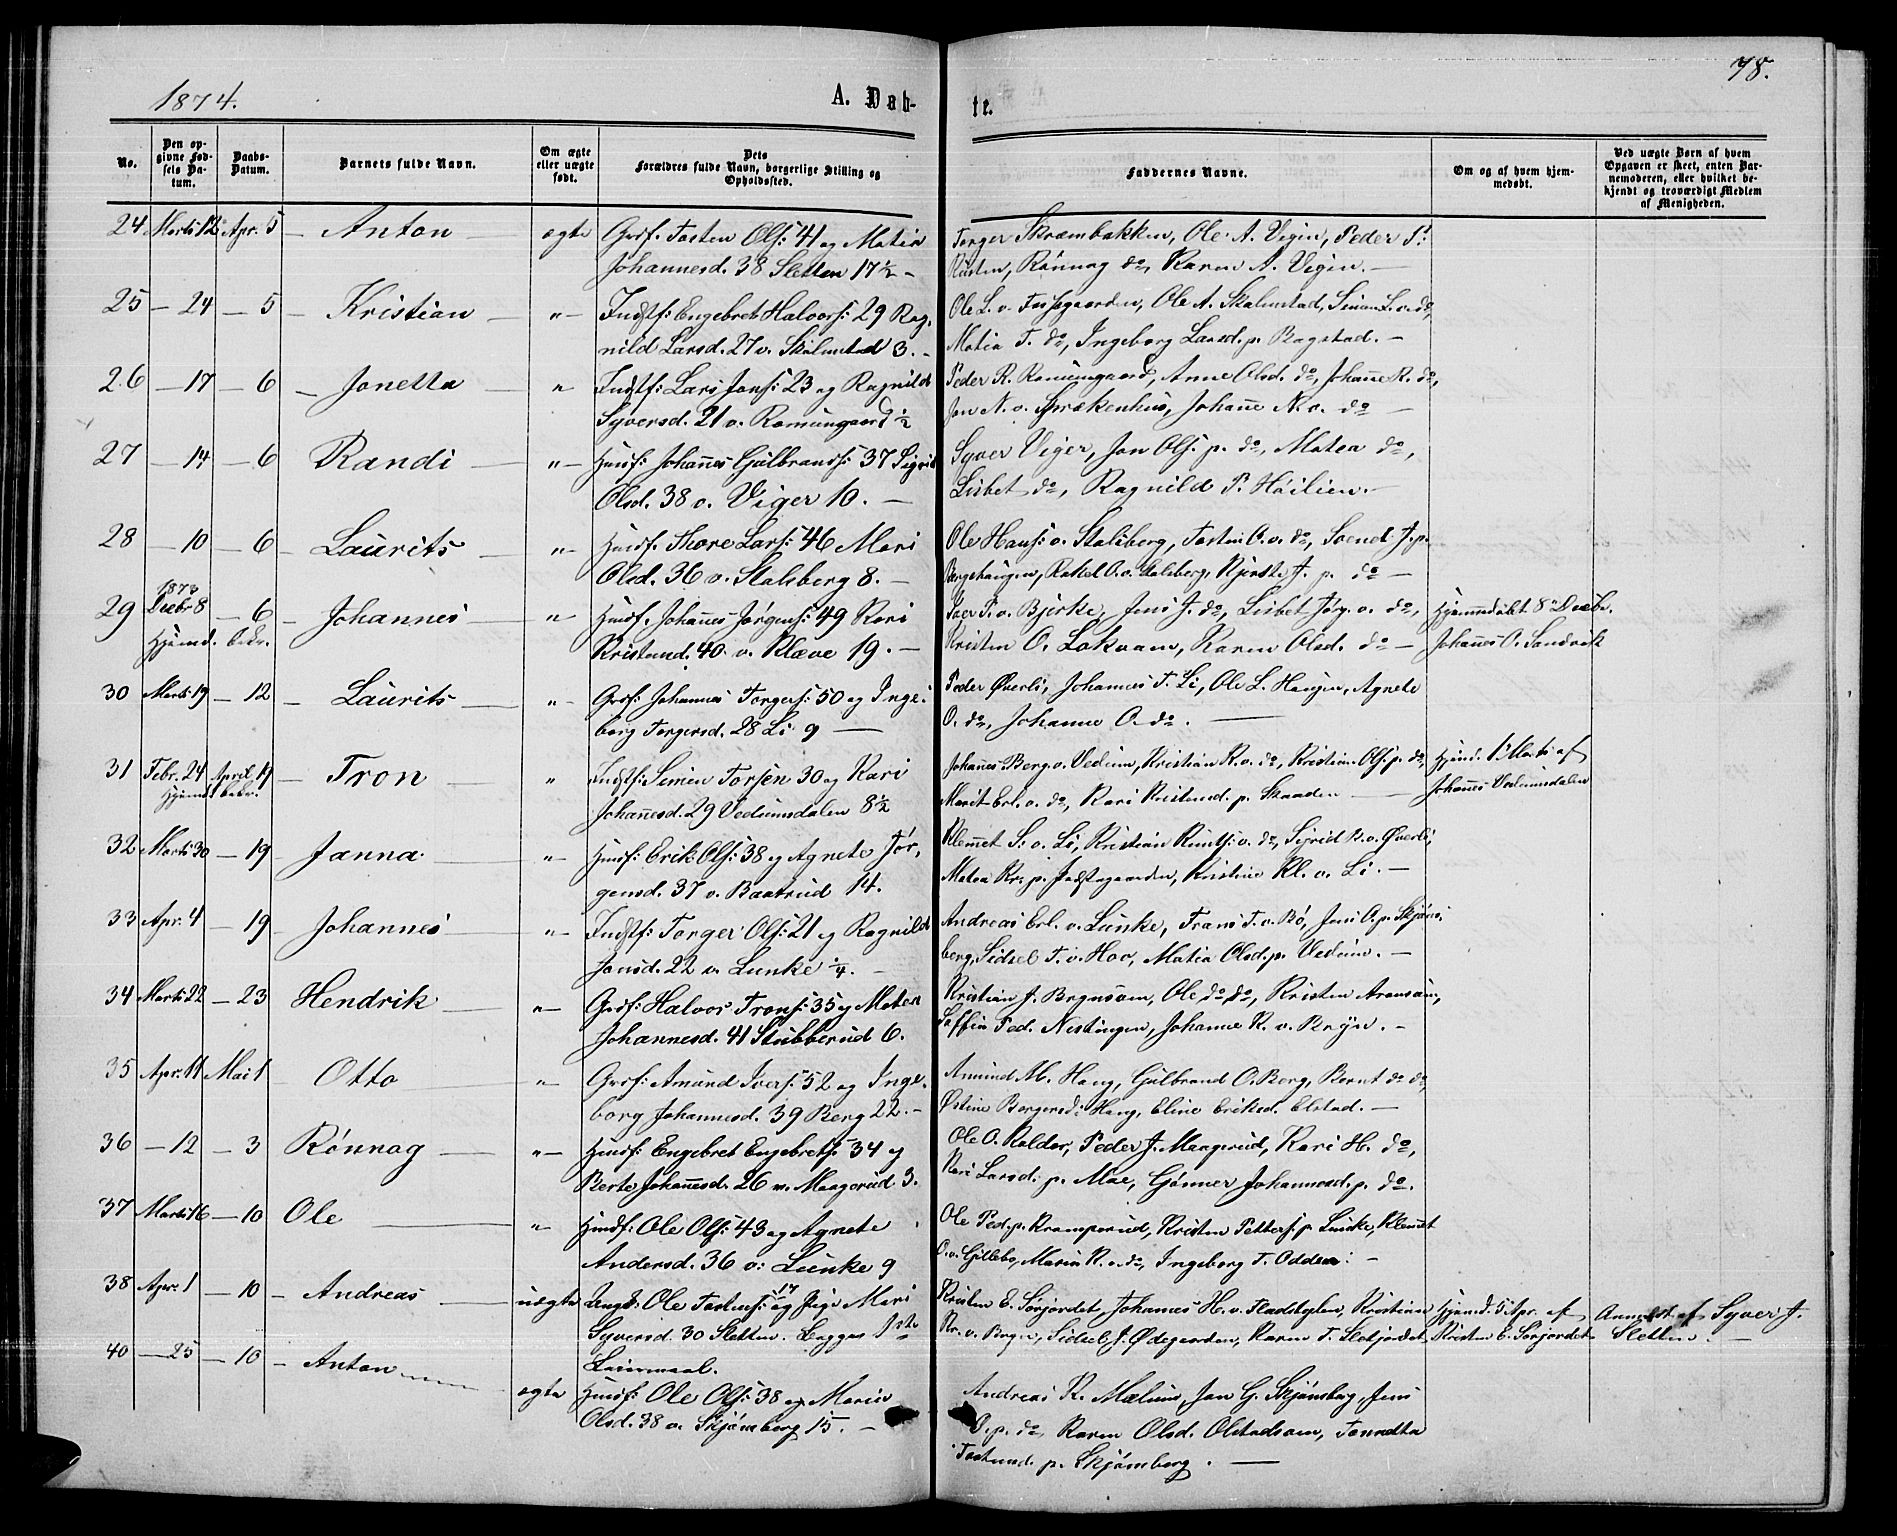 1874.
A. Døb-
te.
78.
No.
Den op-
givne Fød-
sels Da-
tum.
Daabs-
Datum.
Barnets fulde Navn.
Om ægte
eller uægte
født.
Dets
Forældres fulde Navn, borgerlige Stilling og
Opholdssted.
Faddernes Navne.
Om og af hvem hjem-
medøbt.
Ved uægte Børn af hvem
Opgaven er skeet, enten Bar-
nemoderen, eller hvilket be-
kjendt og troværdigt Medlem
af Menigheden.
24 Marts 12 Apr. 5 – Anton – ægte Grdf. Tosten Ols: 41 og Matia
Johannesd. 38 Sletten 17½ –
Torger Skrambakken, Ole A. Vigin, Peder P.
Kristen, Rönnog do, Karen A. Vigin. –
25 – 24 – 5 – Kristian – " – Indstf: Engebret Halvors: 29 Rag-
nild Larsd. 27 v. Skalmstad 3. –
Ole L. v. Fossgaarden, Ole A. Skalmstad, Simen L. v. do,
Matia T. do, Ingeborg Larsd. p. Bagstad. –
26 – 17 – 6 – Jonetta – " Indstf: Lars Jons: 23 og Ragnild
Syversd. 21 v. Romungaard ½
Peder R. Romungaard, Anne Olsd. do, Johanne R. do,
Jon N. v. Sprækenhus, Johanne N. v. do –
27 – 14 – 6 Randi – " – Husf: Johannes Gulbrands: 37 Sigrid
Olsd. 38 v. Viger 10. –
Syver Viger, Jon Ols. p. do, Matea do,
Lisbet do, Ragnild P. Höilien. –
28 – 10 – 6 – Laurits – " – Husf. Thore Lars: 46 Mari
Olsd. 36 v. Stalsberg 8. –
Ole Hans: v. Stalsberg, Tosten O. v. do, Svend J. p.
Bergehaugen, Rakel O. v. Stalsberg, Kjerste J. p. do –
1873
29 Decbr 8 – 6 – Johannes – " – Husf. Johannes Jörgens: 49 Kari
Hjemd. bekr.
Kristend. 40 v. Klæve 19. –
Iver P. v. Bjerke, Jens J. do, Lisbet Jörg. v. do,
Kristen O. Lokvam, Karen Olsd. do –
Hjemmedöbt 8 Decbr.
Johannes O. Sandvik
30 Marts 19 – 12 – Laurits – " – Grdf. Johannes Torgers: 50 og Inge-
borg Torgersd. 28 Li 9 –
Peder Överli, Johannes T. Li, Ole L. Haugen, Agnete
O. do, Johanne O. do. –
31 Febr. 24 April 19 – Tron – " Indstf: Simen Torsen 30 og Kari
Hjemd. bekr.
Johannesd. 29 Vedumsdalen 8½
Johannes Berg v. Vedum, Kristian K. v. do, Kristian Ols. p. do,
Marit Erl. v. do, Kari Kristend. p. Skaaden –
Hjemd. 1 Marts af
Johannes Vedumsdalen
32 Marts 30 – 19 – Janna – " – Husf: Erik Ols: 38 og Agnete Jör-
gensd. 37 v. Baatrud 14.
Klemmet S. v. Li, Kristian Knuts: v. do, Sigrid B. v. Överli,
Matea Kr. p. , Kristine Kl. v. Li. –
33 Apr. 4 – 19 – Johannes – " – Indstf: Torger Ols: 21 og Ragnild
Jonsd. 22 v. Lunke ¼. –
Andreas Erl. v. Lunke, Frans T. v. Bö, Jens O. p. Skjöns-
berg, Sidsel T. v. Hov, Matia Olsd. p. Vedum. –
34 Marts 22 – 23 Hendrik – " – Grdf: Halvor Trons: 35 og Maten
Johannesd. 41 Stubberud 6.
Kristian J. Brynsven, Ole do do, Kristen Aronsven,
Soffia Ped. Nestingen, Johanne K. v. Bryn. –
35 Apr. 11 Mai 1 – Otto – " – Grdf: Amund Ivers: 52 og Inge-
borg Johannesd. 39 Berg 22. –
Amund M. Haug, Gulbrand O. Berg, Bernt do do,
Östine Borgersd: Haug, Eline Eriksd. Elstad. –
36 – 12 – 3 Rönnog – " – Husf: Engebret Engebrets: 34 og
Berte Johannesd. 26 v. Maagerud 3.
Ole O. Kaldor, Peder J. Maagerud, Kari H. do,
Kari Larsd. p. Moe, Gönner Johannesd. p. do.
37 Marts 16 – 10 Ole – " Husf: Ole Ols: 43 og Agnete
Andersd. 36 v: Lunke 9
Ole Ped. p. Kramperud, Kristen Petters. p. Lunke, Klemet
O. v. Gillebo, Maria K. v. do, Ingeborg T. Odden: –
38 Apr. 1 – 10 – Andreas – uægte Ungk: Ole Tostens: 17 og Pige Mari
Syversd. 30 Sletten. Begges 1ste
Leiermaal.
Kristen E. Sörjordet, Johannes H. v. Fladstylen, Kristian
Kr. v. Bryn, Sidsel J. Ödegaarden, Karen T. Sletjordet
Hjemd. 5 Apr. af
Kristen E. Sörjordet
Anmeldt af Syver J.
Sletten. –
40 – 25 – 10 – Anton – ægte Husf: Ole Ols: 38 og Maria
Olsd. 38 v. Skjönsberg 15. –
Andreas K. Mælum, Jon G. Skjönsberg, Jens
O. p. do, Karen Olsd. Olstadsven, Tonnetta
Tostensd. p. Skjönsberg. –